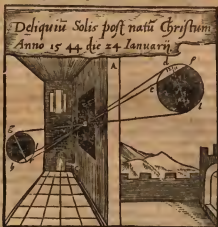 Deliquiū Solis post natū Christum
Anno 1544 die 24 Ianuarij
A